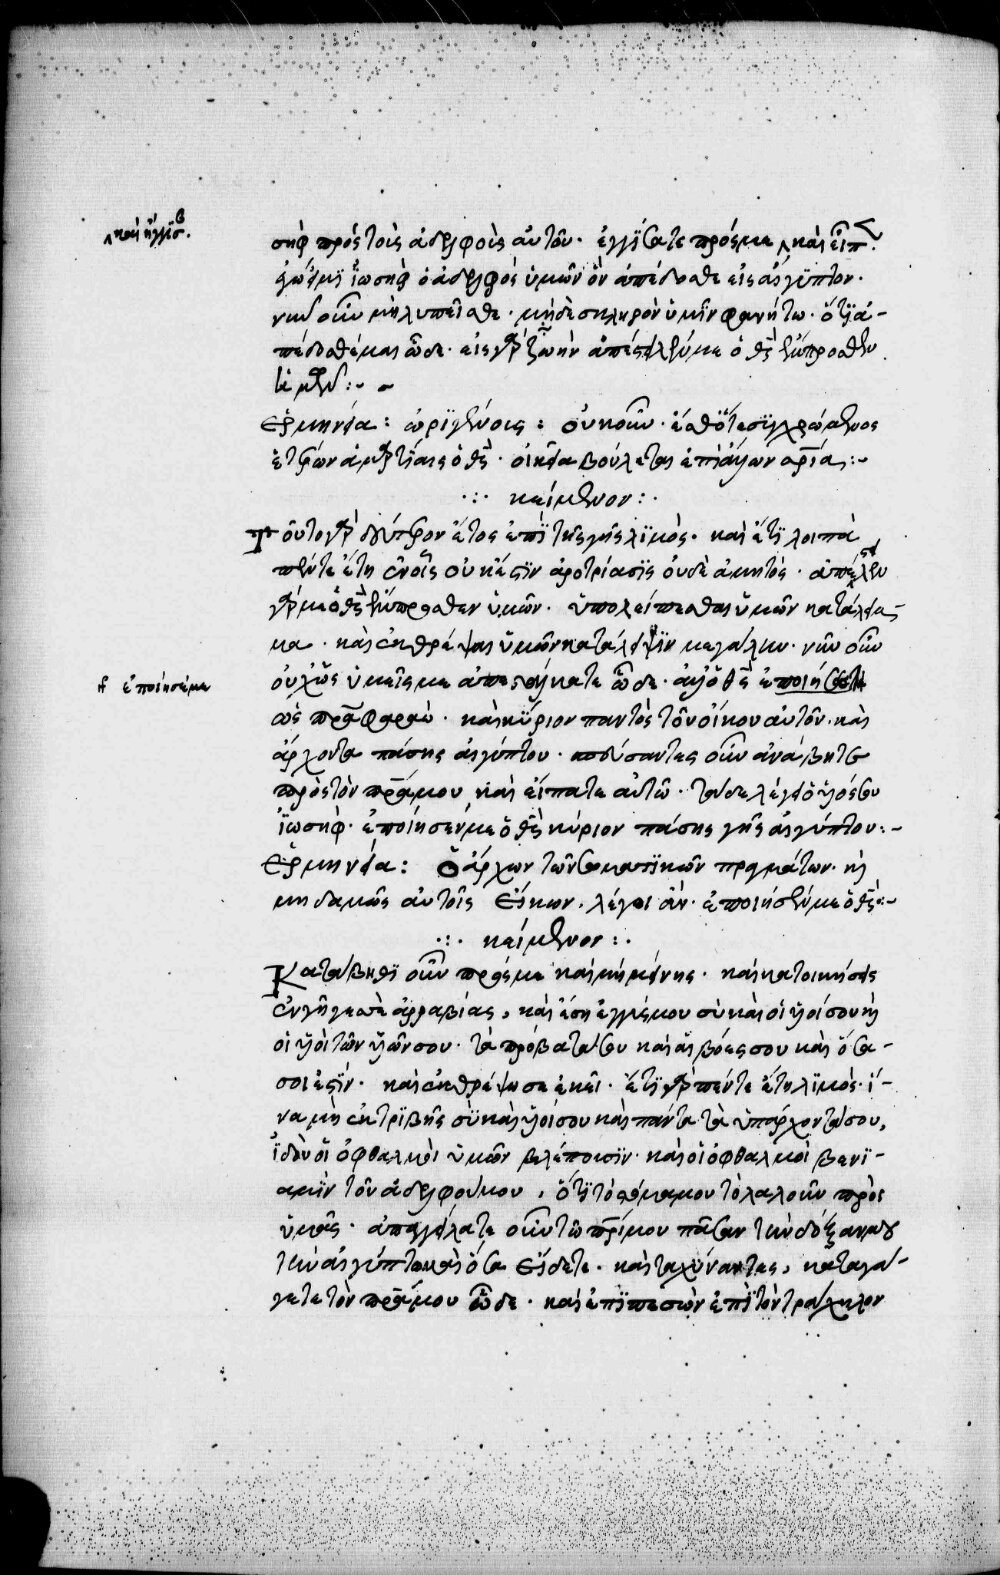 καὶ ἤγγισ.
σὴφ πρὸς τοὺς ἀδελφοὺς αὐτοῦ· ἐγγίσατε πρός με καὶ εἶπ.
ἐγώ εἰμϊ ἰωσὴφ ὁ ἀδελφὸς ὑμῶν ὃν ἀπέδοσθε εἰς αἴγϋπτον·
νῦν οὖν μὴ λυπεῖσθε· μηδὲ σκληρὸν ὑμῖν φανήτω· ὅτϊ ἀ-
πέδοσθέ μαι ὧδε· εἰς γὰρ ζωὴν ἀπέστειλέν με ὁ θς ἔμπροσθεν
ὑμῶν :~ ~
ἑρμηνεία: ὠρϊγένους: οὐκοῦν·
ἑτέρων ἁμαρτίαις ὁ θς· βούλεται
.:. κείμενον :.
Τοῦτο γὰρ δεύτερον ἔτος ἐπϊ τῆς γῆς λϊμός· καὶ ἔτϊ λοιπὰ
πέντε ἔτη ἐν οἷς οὐκ ἔστϊν ἀροτρίασϊς οὐδὲ ἀμητός· ἀπέστειλεν
γάρ με ὁ θς ἔμπροσθεν ὑμῶν· ὑπολείπεσθαι ὑμῶν κατάλειμ-
μα· καὶ ἐκθρέψαι ὑμῶν κατάλειψϊν μεγάλην· νῦν οὖν
οὐχ ὑμεῖς με ἀπεστάλκατε ὧδε· ἀλλ' ὁ θς ἐποίησεν
ἐποίησέ με
ὡς πρα φαραὼ· καὶ κύριον παντὸς τοῦ οἴκου αὐτοῦ· καὶ
ἄρχοντα πάσης αἰγύπτου· σπεύσαντες οὖν ἀνάβητε
πρὸς τὸν πρα μου καὶ εἴπατε αὐτῶ· τάδε λέγει ὁ υἱός σου
ἰωσήφ· ἐποίησέν με ὁ θς κύριον πάσης γῆς αἰγύπτου :~
ἑρμηνεία: ὁ ἄρχων τῶν σωματϊκῶν πραγμάτων· κὶ
μηδαμῶς αὐτοῖς εἴκων, λέγοι ἂν· ἐποίησέν με ὁ θς :~
.:. κείμενον :.
Κατάβηθϊ οὖν πρός με καὶ μὴ μείνης· καὶ κατοικήσεις
ἐν γῆ γεσὲμ ἀρραβίας, καὶ ἔση ἐγγύς μου σὺ καὶ οἱ υἱοί σου κὶ
οἱ υἱοὶ τῶν υἱῶν σου· τὰ πρόβατά σου καὶ αἱ βόες σου καὶ ὅσα
σοι ἐστϊν· καὶ ἐκθρέψω σε ἐκεῖ· ἔτϊ γὰρ πέντε ἔτη λϊμός· ἵ-
να μὴ ἐκτρϊβῆς σὺ καὶ υἱοί σου καὶ πάντα τὰ ὑπάρχοντά σου,
ἰδοὺ οἱ ὀφθαλμοὶ ὑμῶν βλέπουσϊν· καὶ οἱ ὀφθαλμοὶ βενϊ-
αμὶν τοῦ ἀδελφοῦ μου, ὅτϊ τὸ στόμα μου τὸ λαλοῦν πρὸς
ὑμᾶς· ἀπαγγείλατε οὖν τῶ πρί μου πᾶσαν τὴν δόξαν μου
τὴν αἰγύπτω καὶ ὅσα εἴδετε· καὶ ταχύναντες, καταγά-
γετε τὸν πρα μου ὧδε· καὶ ἐπϊπεσὼν ἐπὶ τὸν τράχηλον